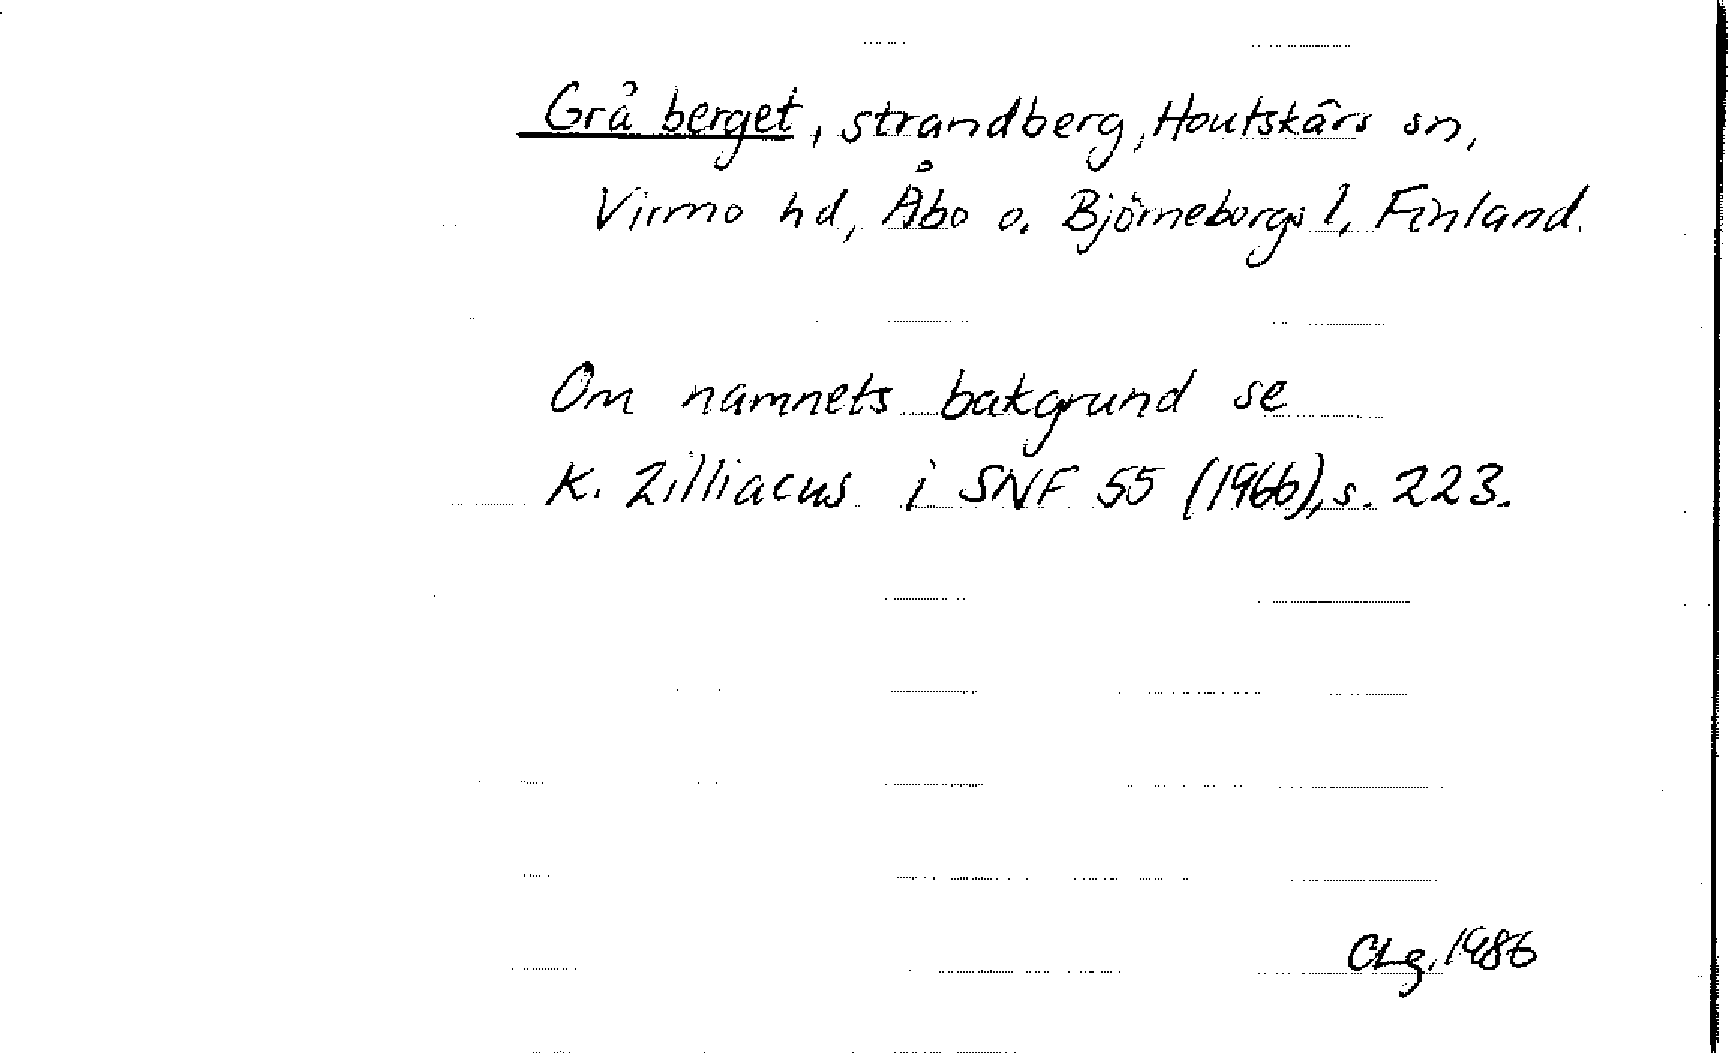 Grå berget, strandberg, Houtskärs sn,
Virmo hd, Åbo o. Björneborgs l, Finland.
Om namnets bakgrund se
K. Zilliacus i SNF 55 (1966), s. 223.
CLg, 1986